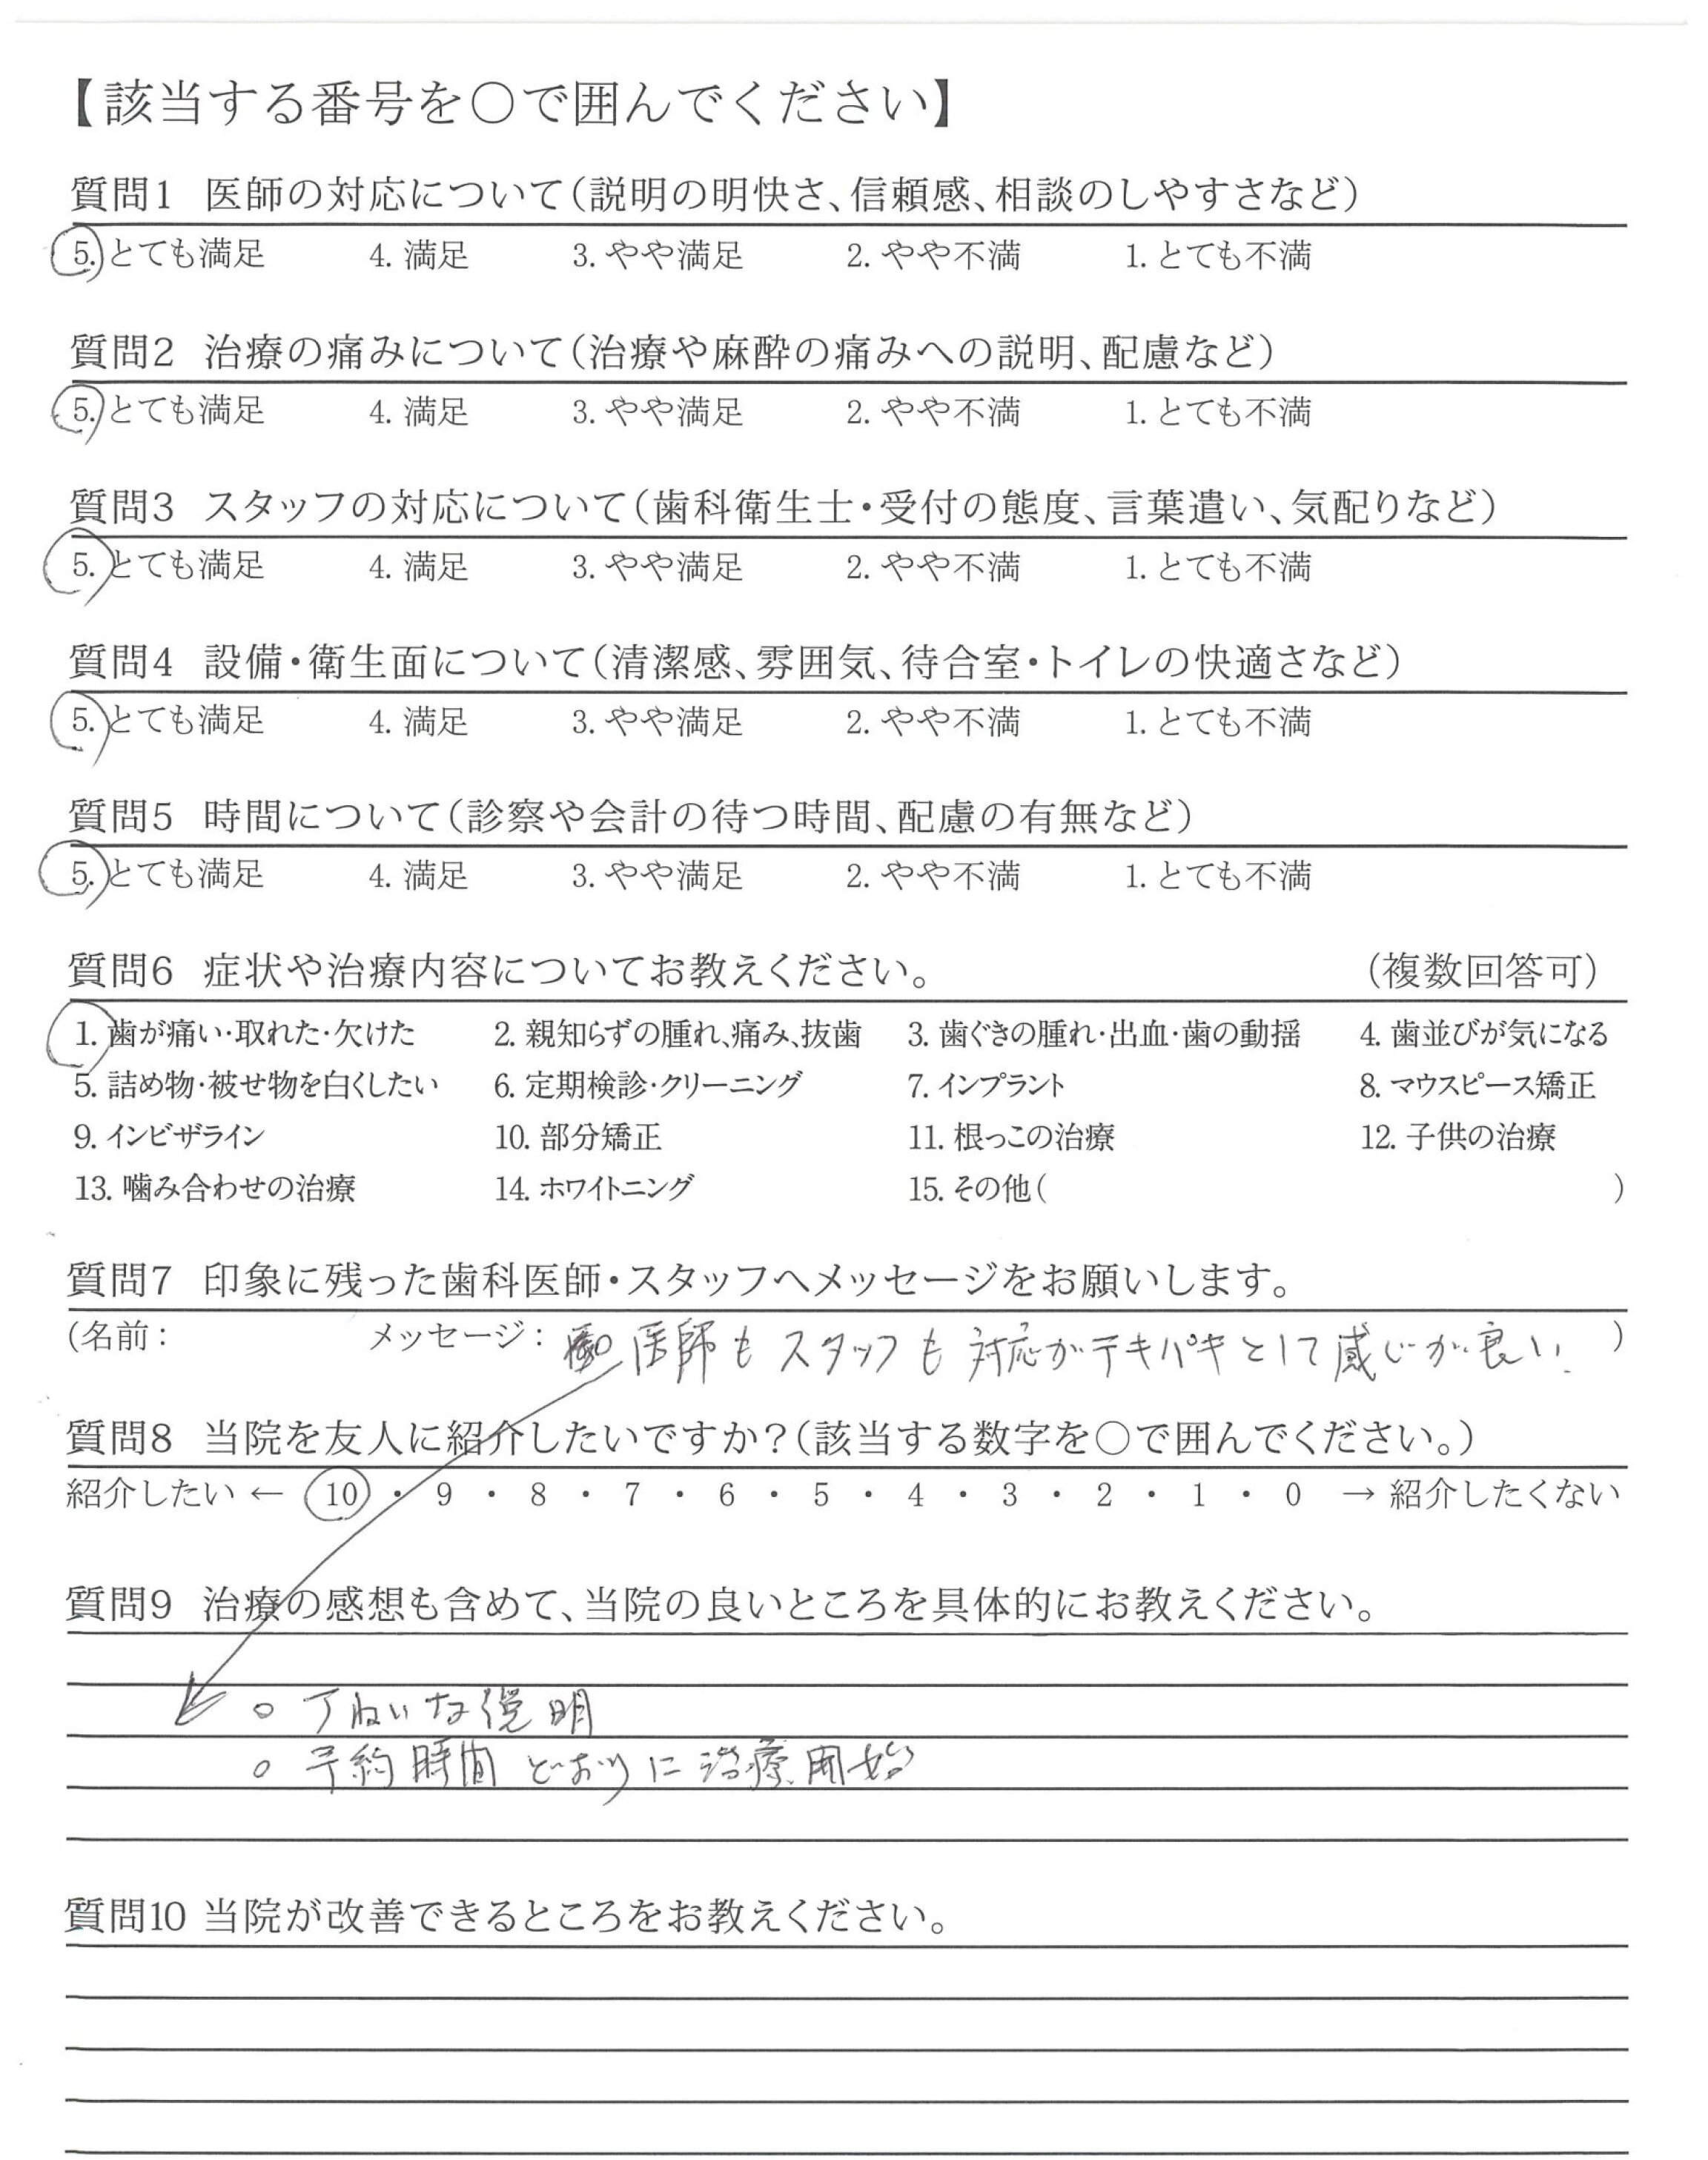 【該当する番号を〇で囲んでください】
質問1 医師の対応について(説明の明快さ、信頼感、相談のしやすさなど)
5. とても満足 4. 満足 3. やや満足 2. やや不満 1. とても不満
質問2 治療の痛みについて(治療や麻酔の痛みへの説明、配慮など)
5. とても満足 4. 満足 3. やや満足 2. やや不満 1. とても不満
質問3 スタッフの対応について(歯科衛生士・受付の態度、言葉遣い、気配りなど)
5. とても満足 4. 満足 3. やや満足 2. やや不満 1. とても不満
質問4 設備・衛生面について(清潔感、雰囲気、待合室・トイレの快適さなど)
5. とても満足 4. 満足 3. やや満足 2. やや不満 1. とても不満
質問5 時間について(診察や会計の待つ時間、配慮の有無など)
5. とても満足 4. 満足 3. やや満足 2. やや不満 1. とても不満
質問6 症状や治療内容についてお教えください。 (複数回答可)
1. 歯が痛い・取れた・欠けた 2. 親知らずの腫れ、痛み、抜歯 3. 歯ぐきの腫れ・出血・歯の動揺 4. 歯並びが気になる
5. 詰め物・被せ物を白くしたい 6. 定期検診・クリーニング 7. インプラント 8. マウスピース矯正
9. インビザライン 10. 部分矯正 11. 根っこの治療 12. 子供の治療
13. 噛み合わせの治療 14. ホワイトニング 15. その他( )
質問7 印象に残った歯科医師・スタッフへメッセージをお願いします。
(名前: メッセージ: 医師もスタッフも対応がテキパキとして感じが良い。 )
質問8 当院を友人に紹介したいですか?(該当する数字を〇で囲んでください。)
紹介したい ← 10 ・ 9 ・ 8 ・ 7 ・ 6 ・ 5 ・ 4 ・ 3 ・ 2 ・ 1 ・ 0 → 紹介したくない
質問9 治療の感想も含めて、当院の良いところを具体的にお教えください。
○ 丁ねいな説明
○ 予約時間どおりに治療開始
質問10 当院が改善できるところをお教えください。